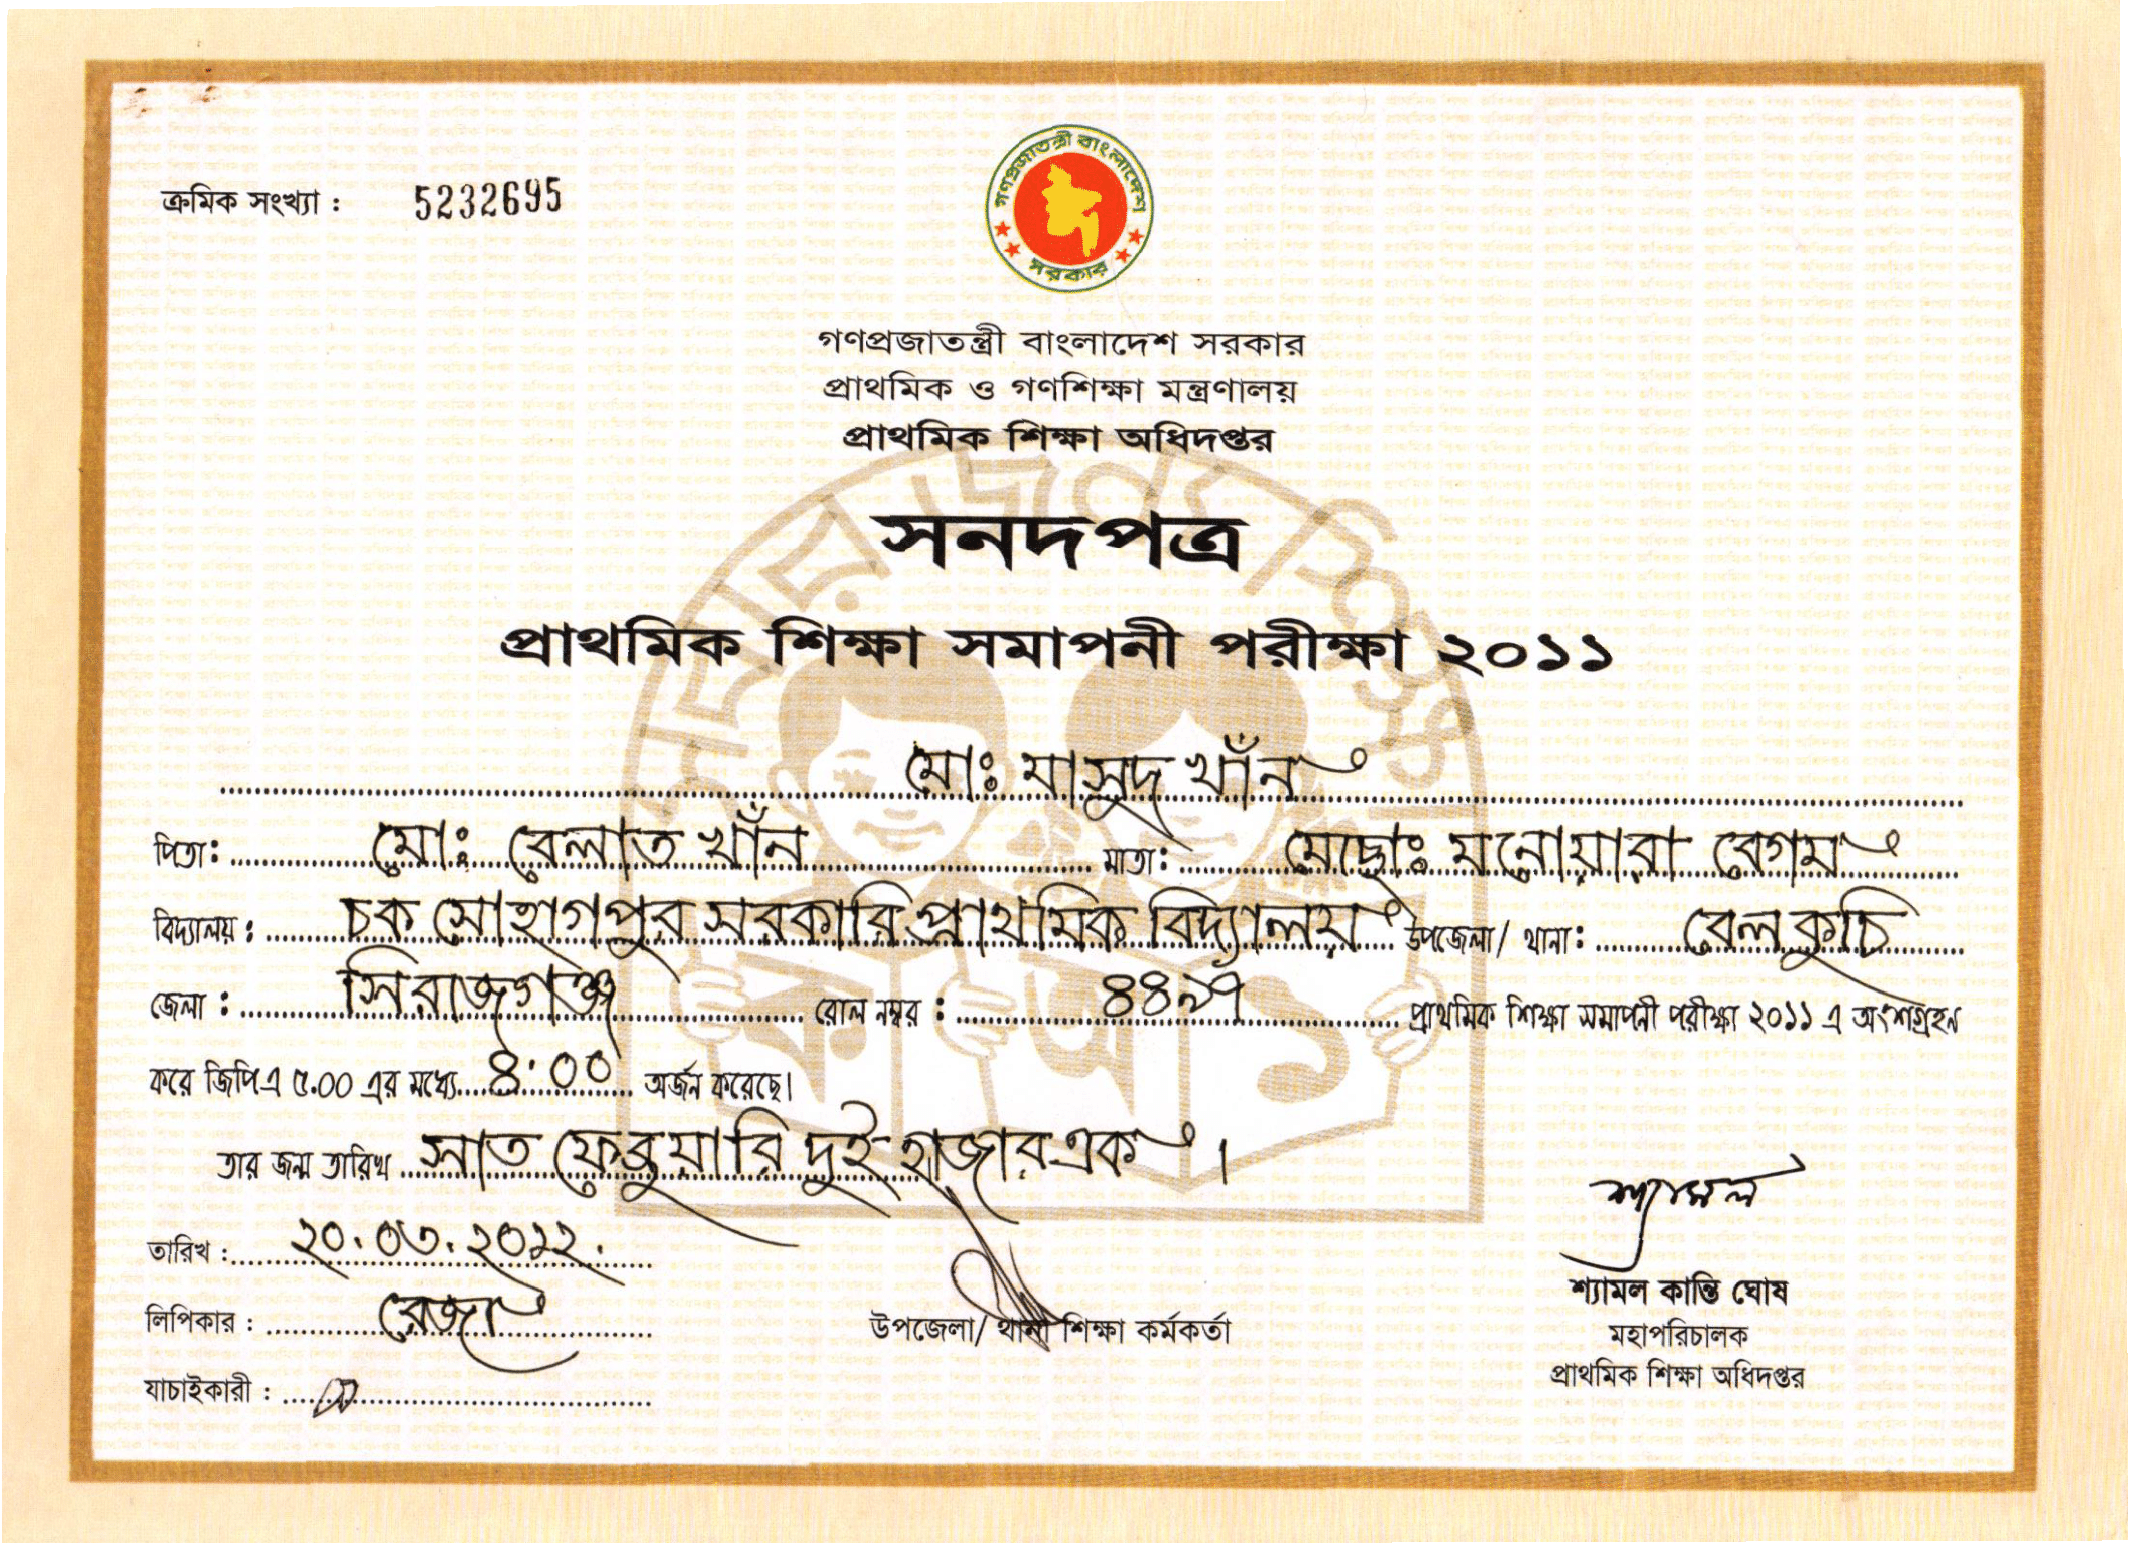 গণপ্রজাতন্ত্রী বাংলাদেশ
সরকার
ক্রমিক সংখ্যা : 5232695
গণপ্রজাতন্ত্রী বাংলাদেশ সরকার
প্রাথমিক ও গণশিক্ষা মন্ত্রণালয়
প্রাথমিক শিক্ষা অধিদপ্তর
সনদপত্র
প্রাথমিক শিক্ষা সমাপনী পরীক্ষা ২০১১
মোঃ মাসুদ খাঁন
পিতা: মোঃ বেলাত খাঁন মাতা: মোছাঃ মনোয়ারা বেগম
বিদ্যালয় : চক সোহাগপুর সরকারি প্রাথমিক বিদ্যালয় উপজেলা/ থানা: বেলকুচি
জেলা : সিরাজগঞ্জ রোল নম্বর : ৪৪৯৭ প্রাথমিক শিক্ষা সমাপনী পরীক্ষা ২০১১ এ অংশগ্রহন
করে জিপিএ ৫.০০ এর মধ্যে ৪.০০ অর্জন করেছে।
তার জন্ম তারিখ সাত ফেব্রুয়ারি দুই হাজার এক।
তারিখ : ২০.০৩.২০১২.
লিপিকার : রেজা
যাচাইকারী :
উপজেলা/ থানা শিক্ষা কর্মকর্তা
শ্যামল
শ্যামল কান্তি ঘোষ
মহাপরিচালক
প্রাথমিক শিক্ষা অধিদপ্তর
সবার জন্য শিক্ষা
ক অ ১